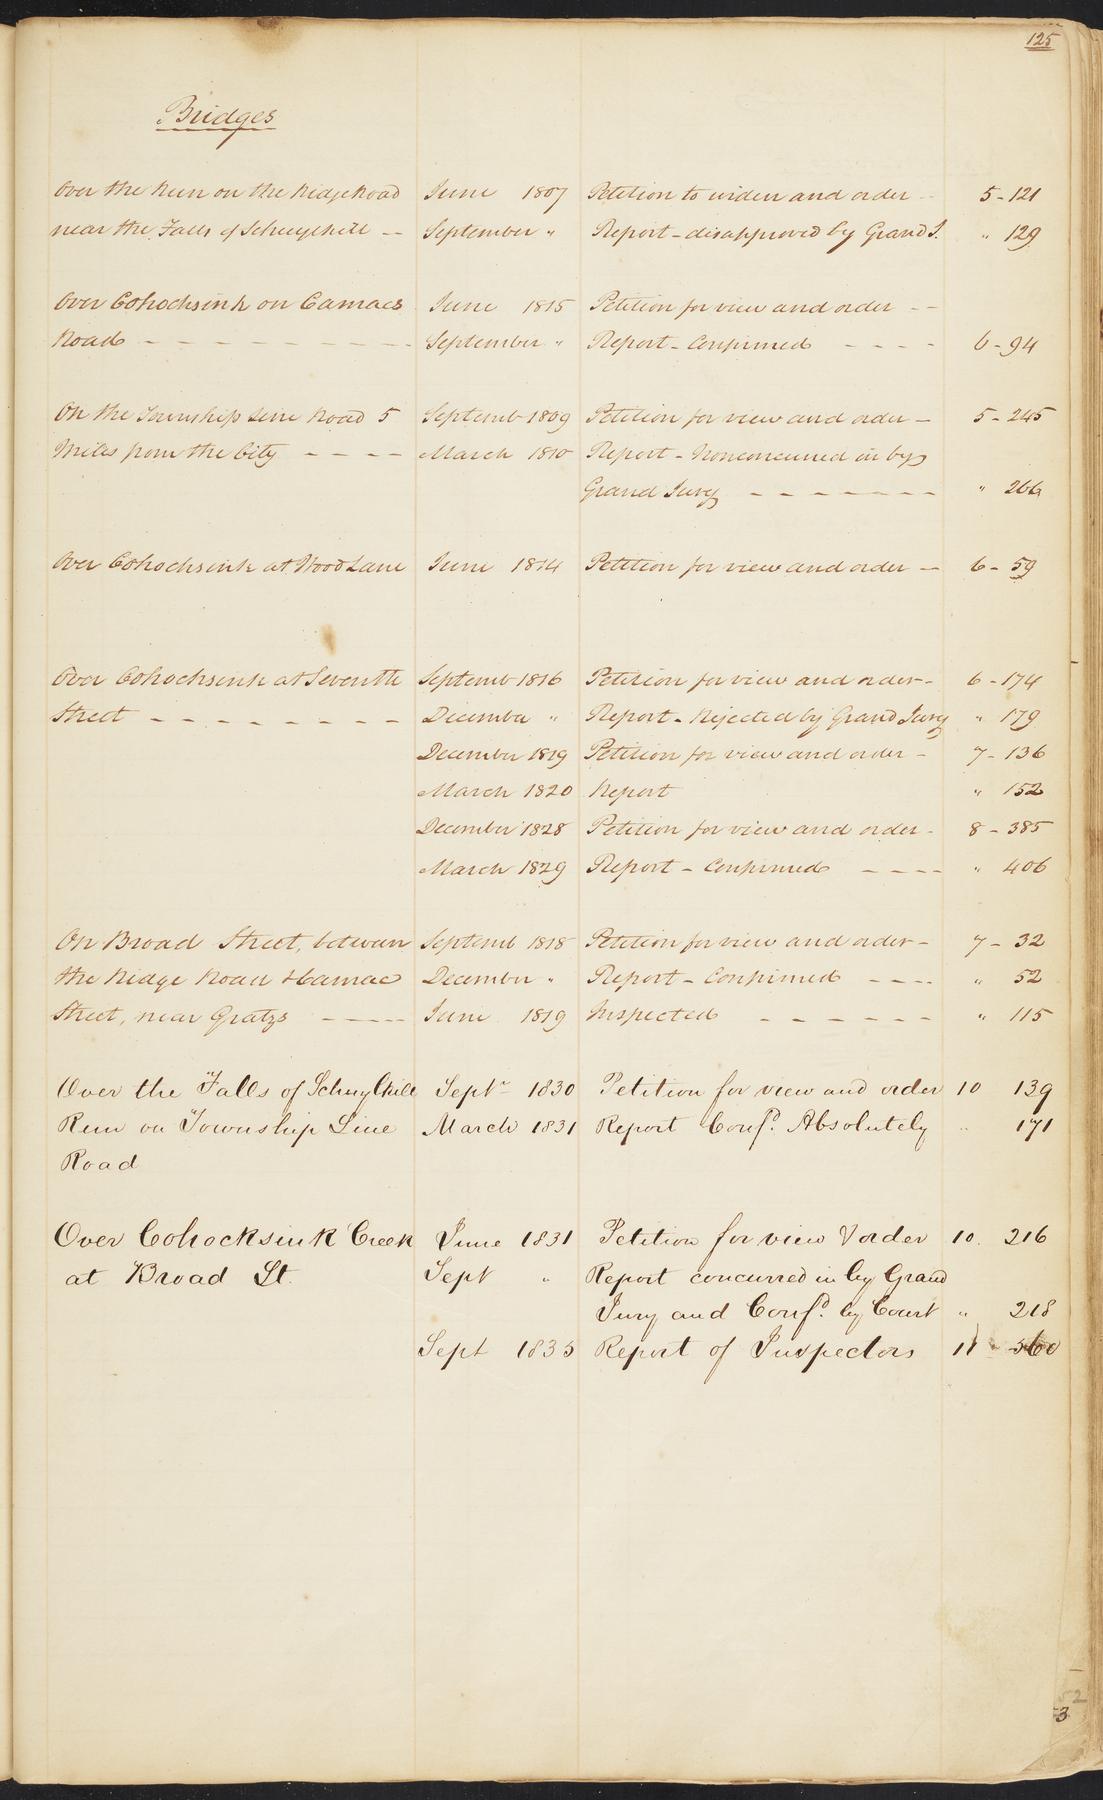 125
Bridges
Over the Run on the Ridge Road June 1807 Petition to widen and order -- 5-121
near the Falls of Schuylkill -- September " Report - disapproved by Grand J. " 129
Over Cohocksink on Camacs June 1815 Petition for view and order --
Road - - - - - - - - - - September " Report - Confirmed - - - - 6-94
On the Township Line Road 5 Septemb 1809 Petition for view and order - 5-245
Miles from the City - - - - March 1810 Report - Nonconcurred in by
Grand Jury - - - - - - - - " 266
Over Cohocksink at Wood Lane June 1814 Petition for view and order - 6-59
Over Cohocksink at Seventh Septemb 1816 Petition for view and order - 6-174
Street - - - - - - - - - December " Report - Rejected by Grand Jury " 179
December 1819 Petition for view and order - 7-136
March 1820 Report " 152
December 1828 Petition for view and order - 8-385
March 1829 Report - Confirmed - - - - " 406
On Broad Street, between Septemb 1818 Petition for view and order - 7-32
the Ridge Road & Camac December " Report - Confirmed - - - - " 52
Street, near Gratzs - - - - June 1819 Inspected - - - - - - " 115
Over the Falls of Schuylkill Septr 1830 Petition for view and order 10 139
Run on Township Line March 1831 Report Confd. Absolutely " 171
Road
Over Cohocksink Creek June 1831 Petition for view & order 10. 216
at Broad St. Sept " Report concurred in by Grand
Jury and Confd. by Court " 218
Sept 1835 Report of Inspectors 11